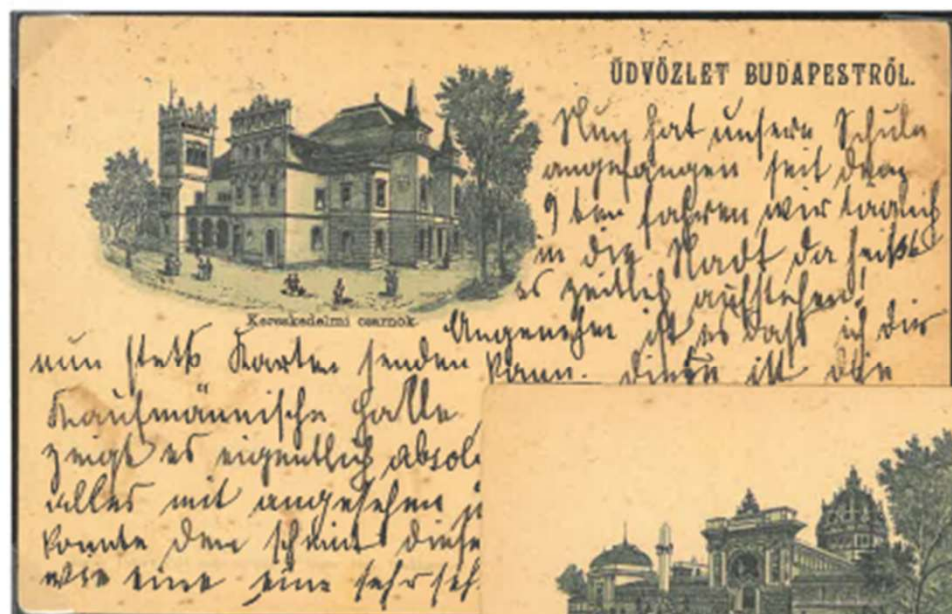 ÜDVÖZLET BUDAPESTRŐL.
Nun hat unsere Schule
angefangen seit dem
9ten fahren wir täglich
in die Stadt da heißt
es zeitlich aufstehen!
Kereskedelmi csarnok.
Angenehm ist es daß ich dir
nun stets Karten senden kann. Diese ist die
Kaufmännische Halle
zeigt es eigentlich
alles mit angesehen
konnte den
wie eine eine sehr